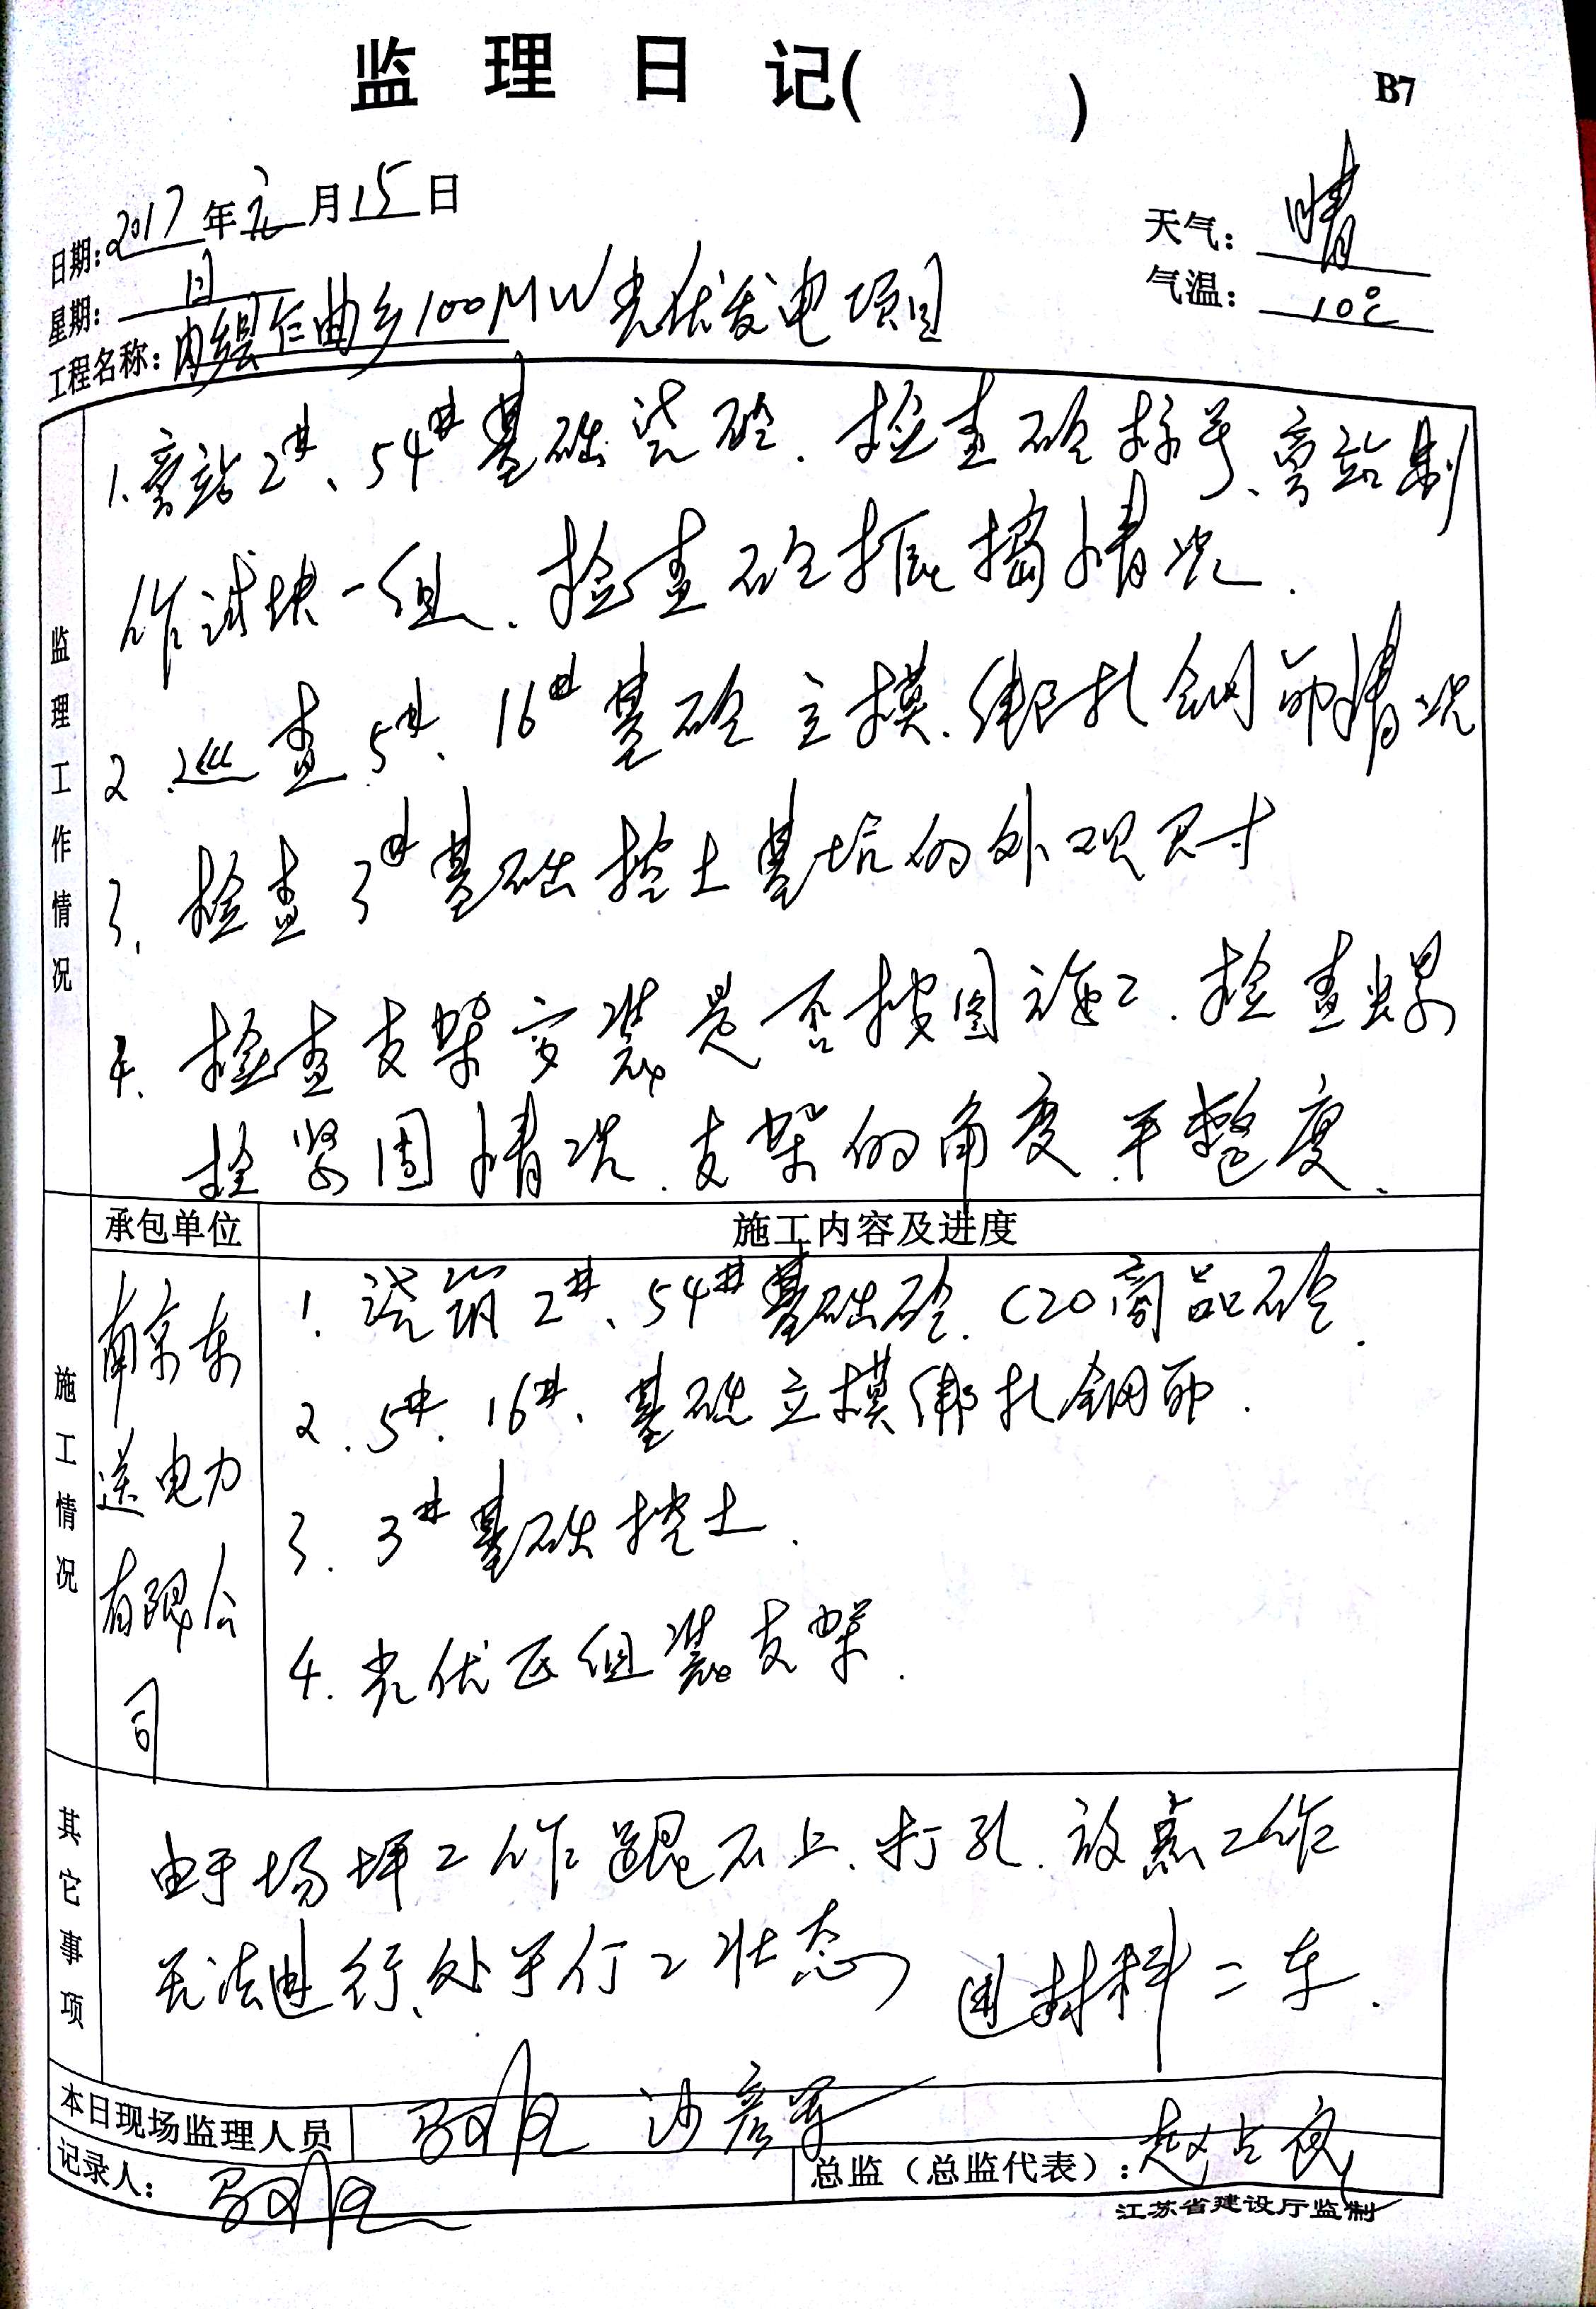 监理日记( )
B7
日期:2017年元月15日
天气:晴
星期:日
气温:10℃
工程名称:内仁曲乡100MW光伏发电项目
监理工作情况
1.旁站2#、54#基础浇砼.检查砼标号、旁站制
作试块一组.检查砼振捣情况.
2.巡查5#、16#基砼立模.绑扎钢筋情况
3.检查3#基础挖土基坑的外观尺寸
4.检查支架安装是否按图施工.检查螺
拴紧固情况.支架的角度.平整度.
施工情况
承包单位
施工内容及进度
南京东
送电力
有限公
司
1.浇筑2#、54#基础砼.C20商品砼.
2.5#.16#.基础立模绑扎钢筋.
3.3#基础挖土.
4.光伏区组装支架.
其它事项
由于场坪工作跟不上.打孔.放点工作
无法进行,处于停工状态 进材料二车.
本日现场监理人员
沙彦军
记录人:
总监(总监代表):赵占良
江苏省建设厅监制